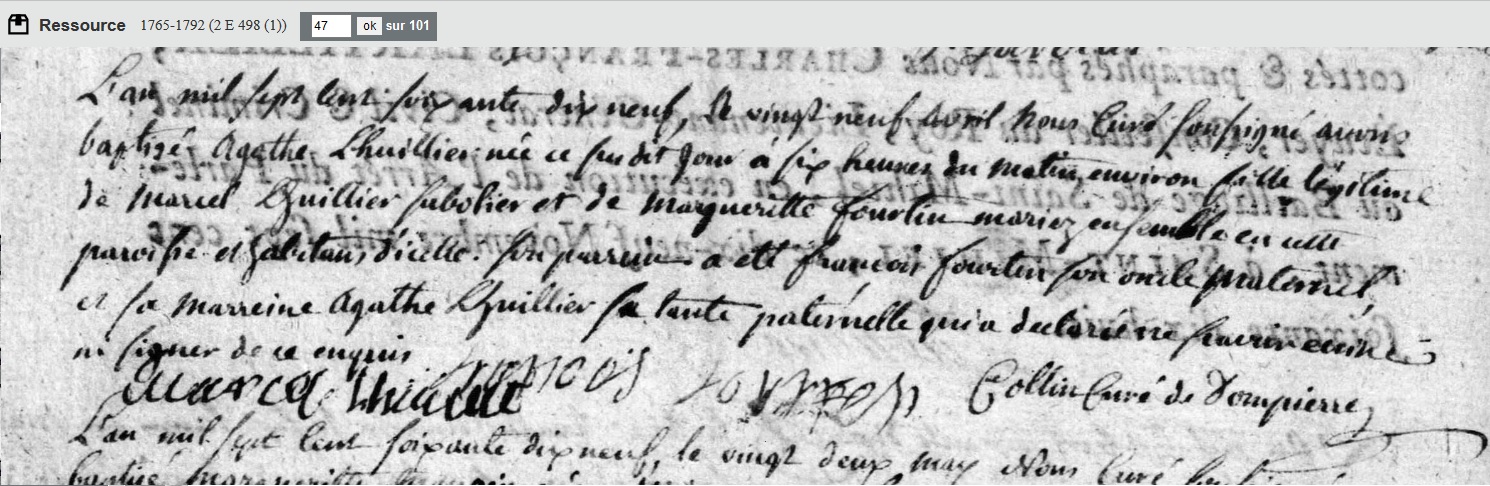 Ressource 1765-1792 (2 E 498 (1)) 47 ok sur 101
cottés & paraphés par Nous CHARLES-FRANÇOIS
L'an mil sept cent soixante dix neuf, le vingt neuf avril Nous Curé soussigné avons
baptizé Agathe Lhuillier née ce susdit jour à six heures du matin environ fille légitime
de Marcel Lhuillier sabotier et de Margueritte fourtin mariez ensemble en cette
paroisse et habitans d'icelle. son parrein a été françois fourtin son oncle maternel,
et sa marreine Agathe Lhuillier sa tante paternelle qui a declaré ne scavoir ecrire
ni signer de ce enquis
Marcel Lhuillie françois Collin Curé de Dompierre
L'an mil sept cent soixante dix neuf, le vingt deux may Nous Curé
baptizé Margueritte